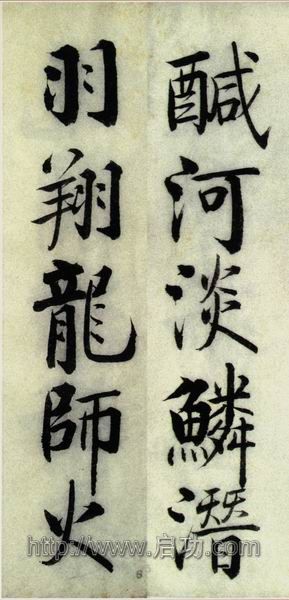 醎河淡鱗潛
羽翔龍師火
http://www.启功.com
8